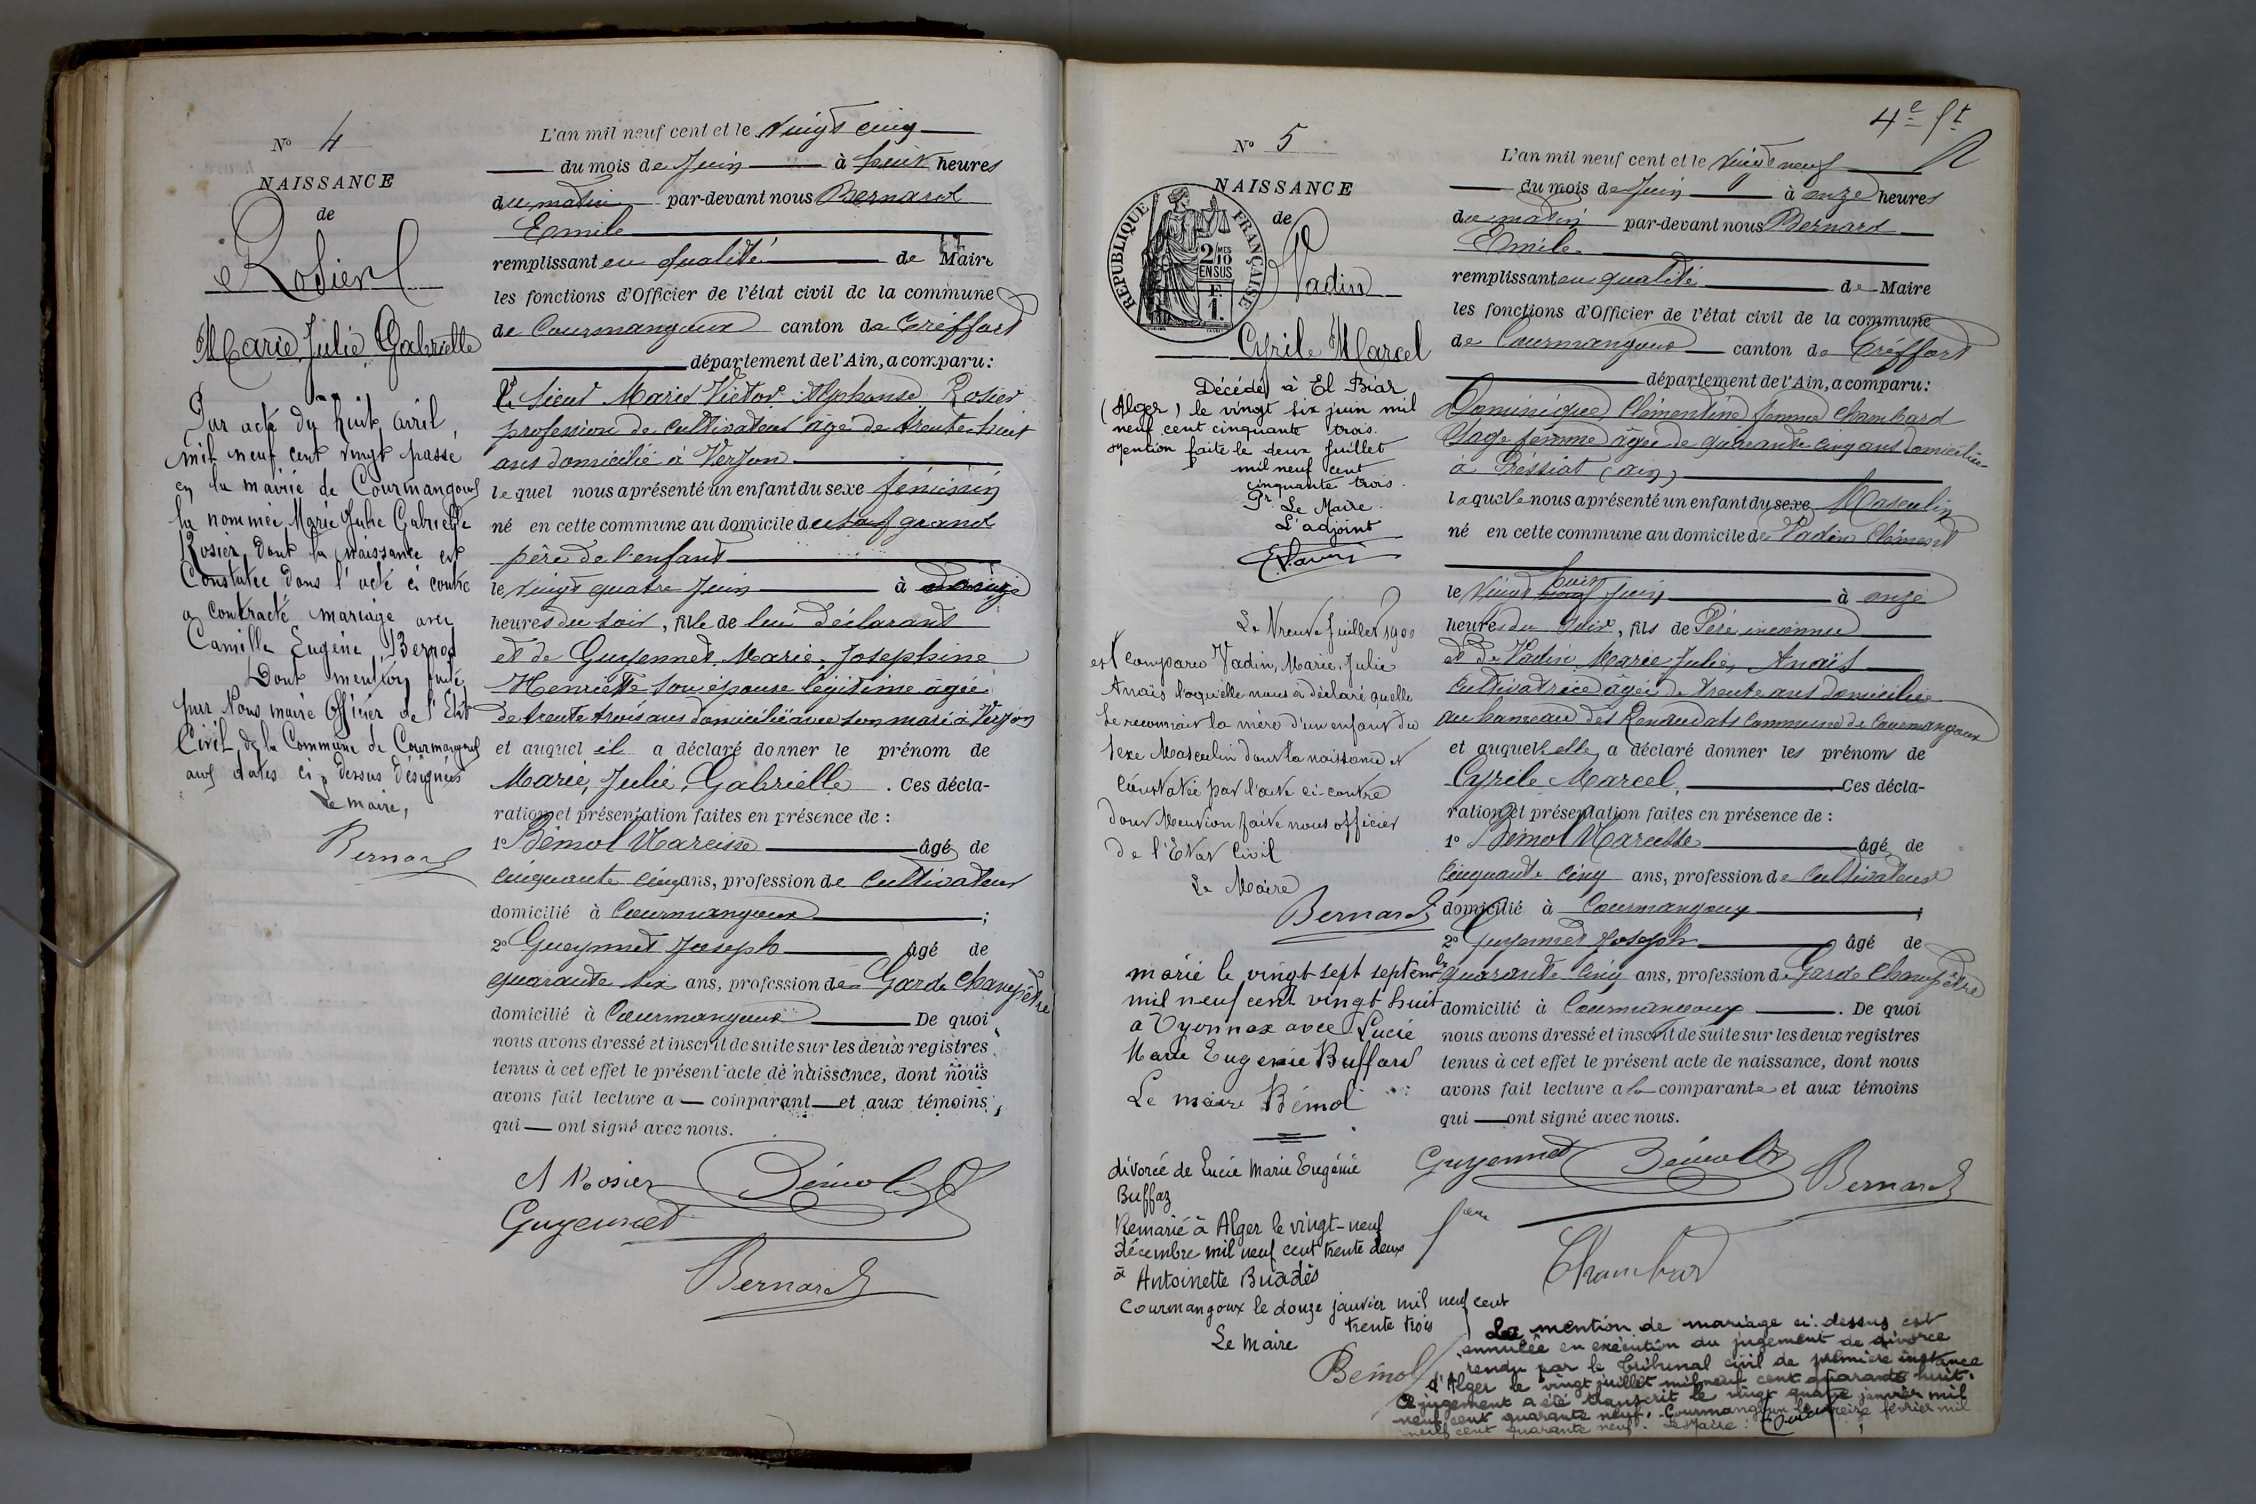 N° 4
NAISSANCE
de
Rosier
Marie Julie Gabrielle
Par acte du huit avril
mil neuf cent vingt passé
en la mairie de Courmangoux
la nommée Marie Julie Gabrielle
Rosier, dont la naissance est
Constatée dans l'acte ci contre
a contracté mariage avec
Camille Eugène Bernod
Dont mention faite
par Nous maire Officier de l'Etat
Civil de la Commune de Courmangoux
aux dates ci-dessus désignées
Le maire,
Bernard
L'an mil neuf cent et le vingt cinq
du mois de Juin à huit heures
du matin par-devant nous Bernard
Emile
remplissant en qualité de Maire
les fonctions d'Officier de l'état civil de la commune
de Courmangoux canton de Tréffort
département de l'Ain, a comparu:
Le sieur Marie Victor Alphonse Rosier
profession de cultivateur âgé de trente huit
ans domicilié à Verjon
lequel nous a présenté un enfant du sexe féminin
né en cette commune au domicile du grand
père de l'enfant
le vingt quatre Juin à
heures du soir, fille de lui déclarant
et de Guyennet Marie, Josephine
Henriette son épouse légitime âgée
de trente trois ans domiciliée avec son mari à Verjon
et auquel il a déclaré donner le prénom de
Marie, Julie, Gabrielle . Ces décla-
ration et présentation faites en présence de :
1° Bémol Narcisse âgé de
cinquante cinq ans, profession de cultivateur
domicilié à Courmangoux ;
2° Gueynnet Joseph âgé de
quarante six ans, profession de Garde Champêtre
domicilié à Courmangoux De quoi
nous avons dressé et inscrit de suite sur les deux registres
tenus à cet effet le présent acte de naissance, dont nous
avons fait lecture a comparant et aux témoins,
qui ont signé avec nous.
A Rosier Bémol
Guyennet
Bernard
4e ft
N° 5
NAISSANCE
de
REPUBLIQUE FRANÇAISE
2/10 MES
EN SUS
F.
1.
Vadin
Cyrile Marcel
Décédé à El Biar
(Alger) le vingt six juin mil
neuf cent cinquante trois.
Mention faite le deux Juillet
mil neuf cent
cinquante trois.
Pr Le Maire
L'adjoint
Le Neuf Juillet 1900
est comparu Vadin, Marie, Julie
Anaïs laquelle nous a déclaré quelle
se reconnait la mère d'un enfant du
sexe Masculin dont la naissance est
Constatée par l'acte ci-contre
dont Mention faite nous officier
de l'Etat Civil
Le Maire
Bernard
marié le vingt sept septembre
mil neuf cent vingt huit
a Oyonnax avec Lucie
Marie Eugénie Buffard
Le maire Bémol
divorcé de Lucie Marie Eugénie
Buffaz
Remarié à Alger le vingt-neuf
décembre mil neuf cent trente deux
à Antoinette Buadès
Courmangoux le douze janvier mil neuf cent
trente trois
Le maire
Bémol
L'an mil neuf cent et le vingt neuf
du mois de Juin à onze heures
du matin par-devant nous Bernard
Emile
remplissant en qualité de Maire
les fonctions d'Officier de l'état civil de la commune
de Courmangoux canton de Tréffort
département de l'Ain, a comparu:
Dominique Clémentine femme Chambard
Sage femme âgée de quarante cinq ans domiciliée
à Préssiat (ain)
laquelle nous a présenté un enfant du sexe Masculin
né en cette commune au domicile de Vadin Clément
le Vingt huit Juin à onze
heures du soir, fils de Père inconnu
et de Vadin Marie Julie, Anaïs
cultivatrice âgée de trente ans domiciliée
au hameau des Renaudats commune de Courmangoux
et auquel elle a déclaré donner les prénoms de
Cyrile Marcel, Ces décla-
ration et présentation faites en présence de :
1° Bémol Narcisse âgé de
Cinquante cinq ans, profession de Cultivateur
domicilié à Courmangoux ;
2° Guyennet Joseph âgé de
quarante cinq ans, profession de Garde Champêtre
domicilié à Courmangoux . De quoi
nous avons dressé et inscrit de suite sur les deux registres
tenus à cet effet le présent acte de naissance, dont nous
avons fait lecture a la comparante et aux témoins
qui ont signé avec nous.
Guyennet Bémol Bernard
Chambard
La mention de mariage ci-dessus est
annulée en exécution du jugement de divorce
rendu par le Tribunal civil de première instance
d'Alger le vingt juillet mil neuf cent quarante huit.
Ce jugement a été transcrit le vingt quatre janvier mil
neuf cent quarante neuf. Courmangoux le treize février mil
neuf cent quarante neuf. Le Maire: